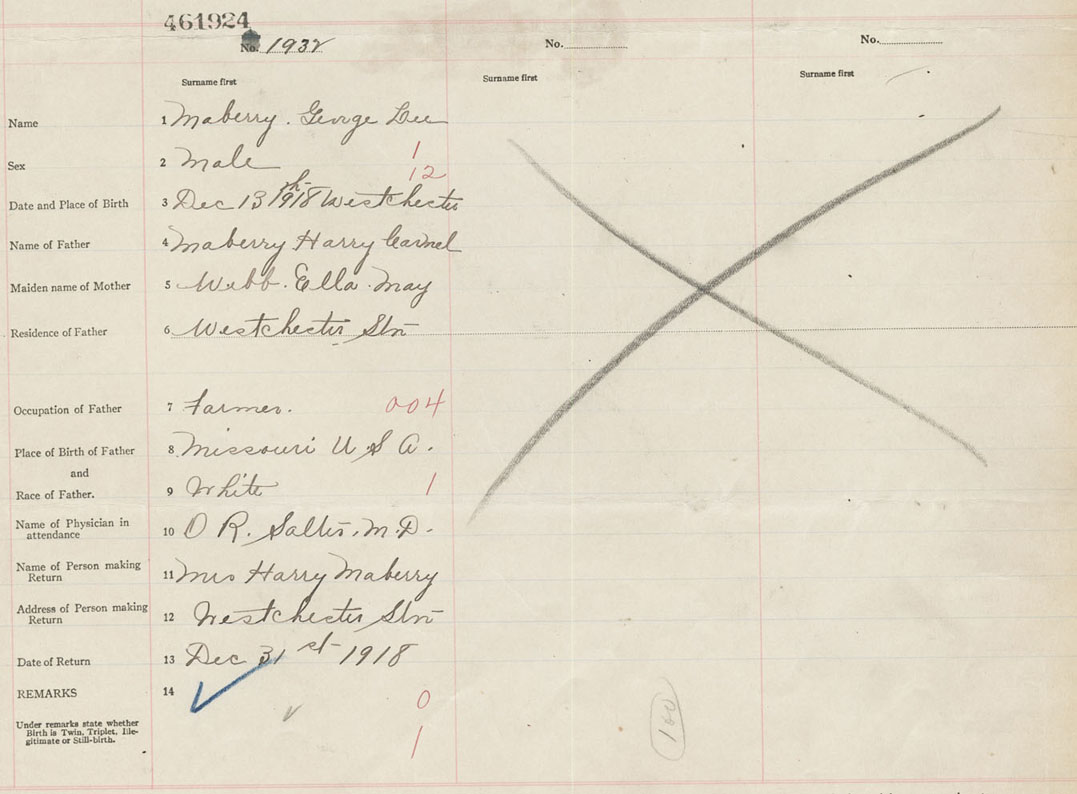 461924
No. 1932
No.
No.
Surname first
Surname first
Surname first
Name 1 Maberry. George Lee
Sex 2 Male 1
12
Date and Place of Birth 3 Dec 13th 1918 Westchester
Name of Father 4 Maberry Harry
Maiden name of Mother 5 Webb. Ella May
Residence of Father 6 Westchester Stn
Occupation of Father 7 Farmer. 004
Place of Birth of Father 8 Missouri U S A.
and
Race of Father. 9 White 1
Name of Physician in
attendance 10 O R. Salter, M.D.
Name of Person making
Return 11 Mrs Harry Maberry
Address of Person making
Return 12 Westchester Stn
Date of Return 13 Dec 31st 1918
REMARKS 14
0
Under remarks state whether
Birth is Twin, Triplet, Ille-
gitimate or Still-birth.
1
100